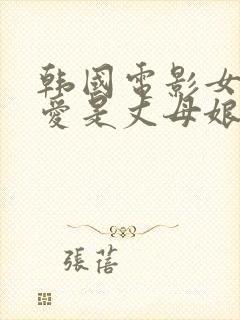 韩國電影女
愛是丈母娘
張蓓